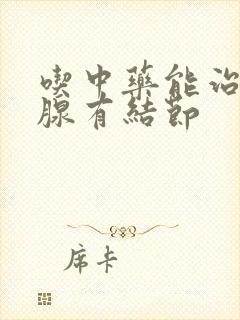 喫中藥能治
腺有結節
席卡